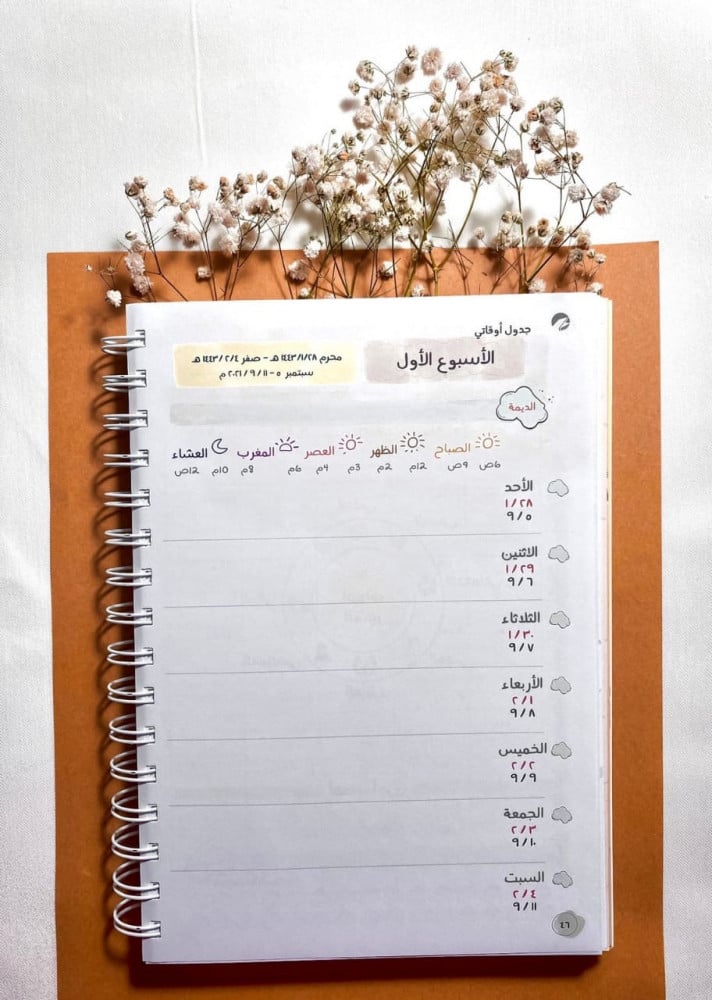 جدول أوقاتي
الأسبوع الأول
محرم ١٤٤٣/١/٢٨ هـ - صفر ١٤٤٣/٢/٤ هـ
سبتمبر ٥ - ٢٠٢١/٩/١١ م
الديمة
الصباح الظهر العصر المغرب العشاء
٦ص ٩ص ١٢م ٢م ٣م ٤م ٦م ٨م ١٠م ١٢ص
الأحد
١/٢٨
٩/٥
الاثنين
١/٢٩
٩/٦
الثلاثاء
١/٣٠
٩/٧
الأربعاء
٢/١
٩/٨
الخميس
٢/٢
٩/٩
الجمعة
٢/٣
٩/١٠
السبت
٢/٤
٩/١١
٤٦